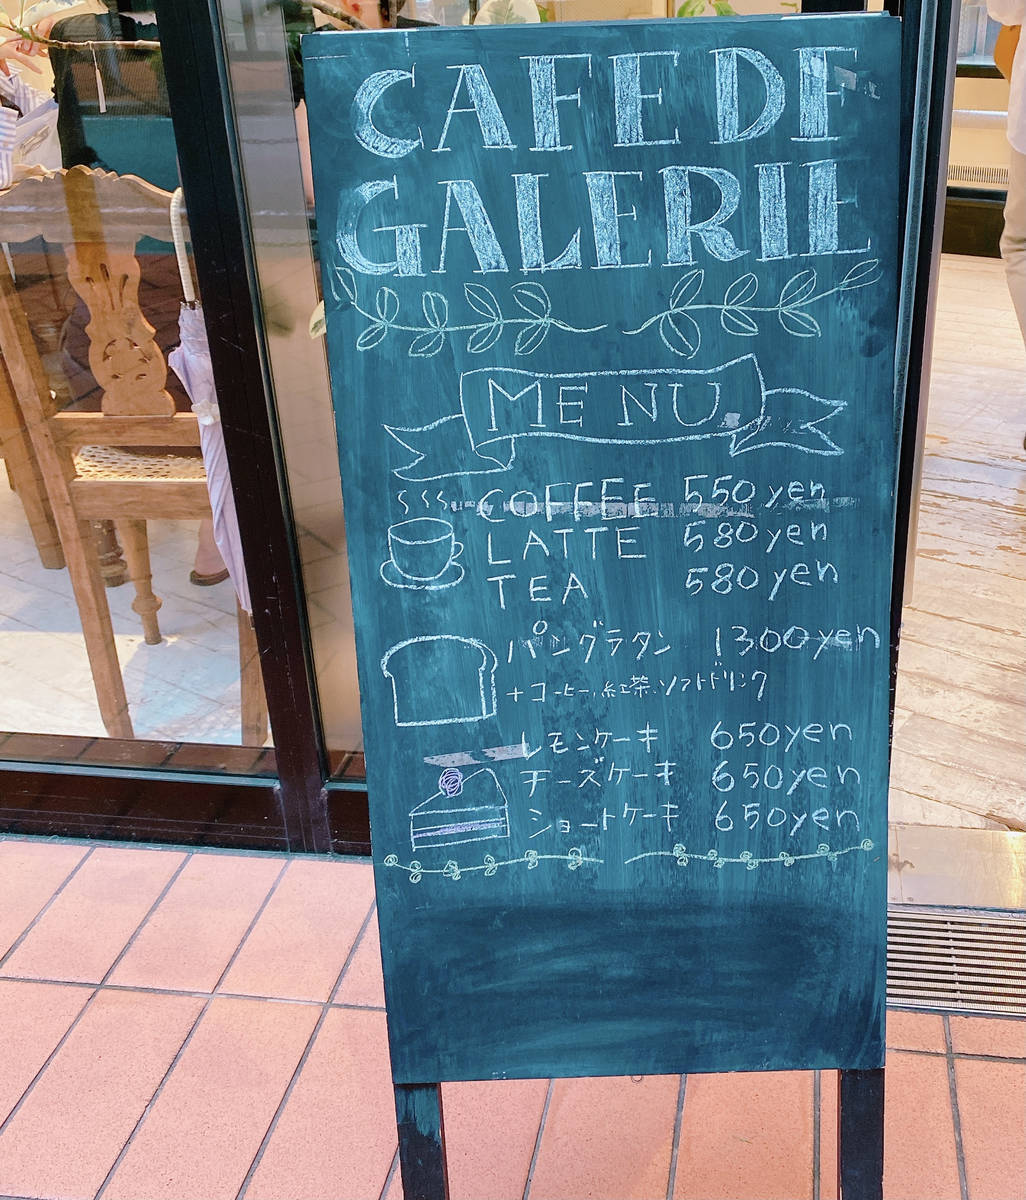 CAFE DE
GALERIE
MENU
COFFEE 550yen
LATTE 580yen
TEA 580yen
パングラタン 1300yen
+コーヒー、紅茶、ソフトドリンク
レモンケーキ 650yen
チーズケーキ 650yen
ショートケーキ 650yen